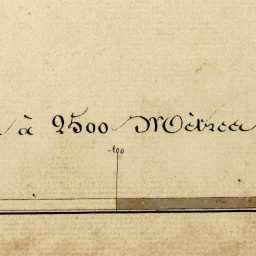 à 2500 Mètres
100